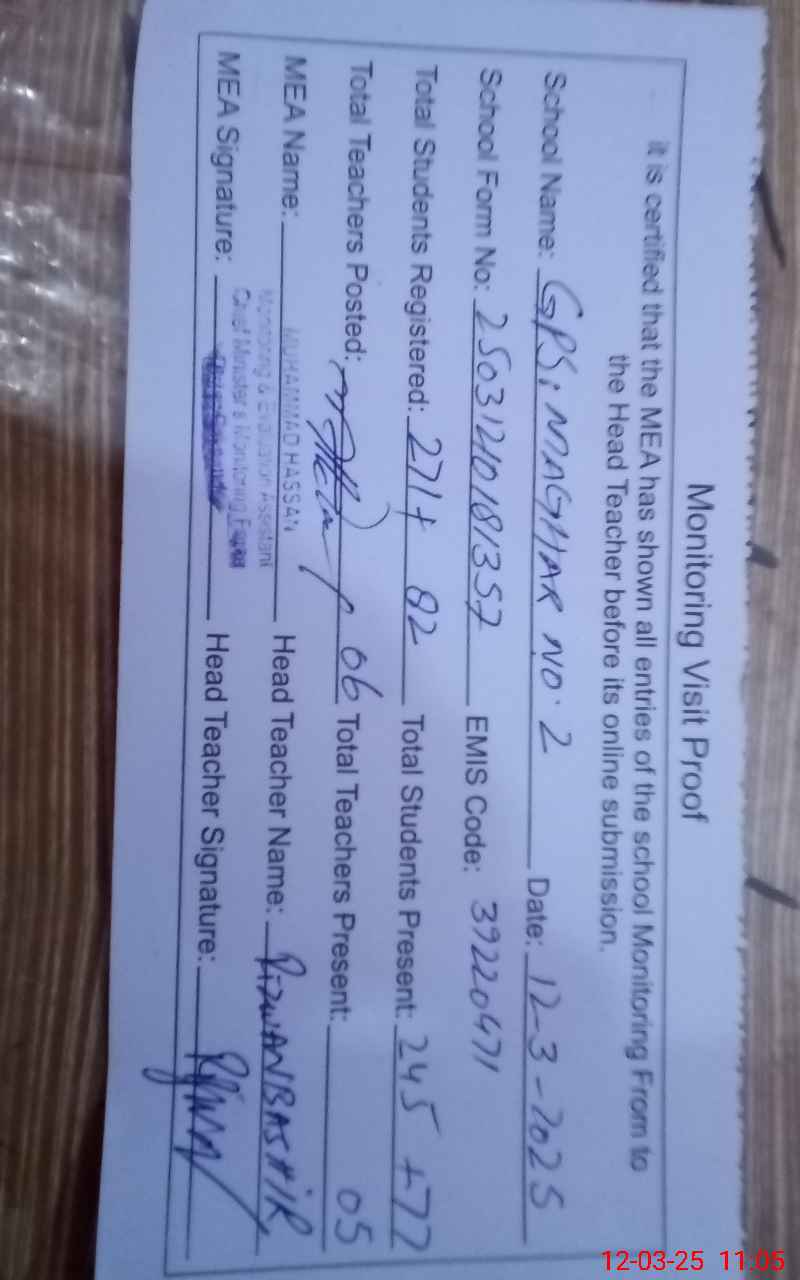 Monitoring Visit Proof
it is certified that the MEA has shown all entries of the school Monitoring From to
the Head Teacher before its online submission.
School Name: GPS; MAGHAR NO. 2 Date: 12-3-2025
School Form No: 25031210181357 EMIS Code: 39220471
Total Students Registered: 271+ 82 Total Students Present: 245 +77
Total Teachers Posted: 06 Total Teachers Present: 05
MEA Name: MUHAMMAD HASSAN Head Teacher Name: RIZWAN BASHIR
Monitoring & Evaluation Assistant
Chief Minister's Monitoring Force
MEA Signature: Head Teacher Signature:
12-03-25 11:05